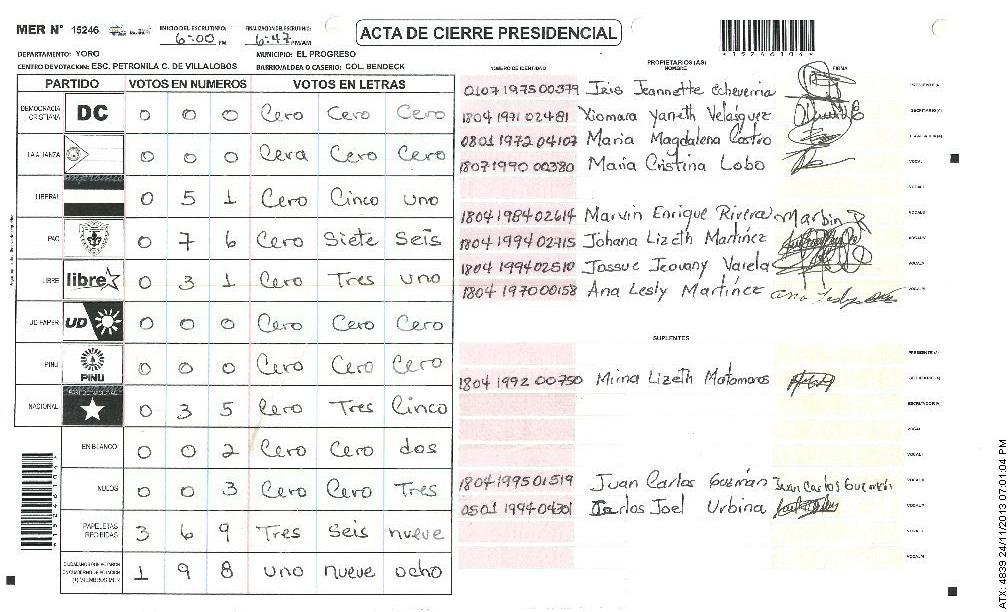 MER N° 15246
INICIO DEL ESCRUTINIO: 6:00 PM
FINALIZACION DEL ESCRUTINIO: 6:47 PM/AM
ACTA DE CIERRE PRESIDENCIAL
DEPARTAMENTO: YORO
MUNICIPIO: EL PROGRESO
CENTRO DE VOTACION: ESC. PETRONILA C. DE VILLALOBOS
BARRIO/ALDEA O CASERIO: COL. BENDECK
PARTIDO VOTOS EN NUMEROS VOTOS EN LETRAS
DEMOCRACIA CRISTIANA DC 0 0 0 Cero Cero Cero
LA ALIANZA 0 0 0 Cera Cero Cero
LIBERAL 0 5 1 Cero Cinco uno
PAC 0 7 6 Cero Siete Seis
LIBRE libre 0 3 1 Cero Tres uno
UD FAPER UD 0 0 0 Cero Cero Cero
PINU PINU 0 0 0 Cero Cero Cero
NACIONAL 0 3 5 Cero Tres Cinco
EN BLANCO 0 0 2 Cero Cero dos
NULOS 0 0 3 Cero Cero Tres
PAPELETAS RECIBIDAS 3 6 9 Tres Seis nueve
1 9 8 uno nueve ocho
NUMERO DE IDENTIDAD
PROPIETARIOS (AS)
NOMBRE
FIRMA
0107 1975 00379 Iris Jeannette Echeverria
1804 1971 02481 Xiomara Yaneth Velásquez
0801 1972 04107 Maria Magdalena Castro
1807 1990 00380 Maria Cristina Lobo
1804 1984 02614 Marvin Enrique Rivera Marbin R
1804 1994 02715 Johana Lizeth Martínez
1804 1994 02510 Jossue Jeovany Varela
1804 1970 00158 Ana Lesly Martínez
SUPLENTES
1804 1992 00750 Mirna Lizeth Matamoros
1804 1995 01519 Juan Carlos Guzmán Juan Carlos Guzmán
0501 1994 04301 Carlos Joel Urbina
ATX: 4839 24/11/2013 07:01:04 PM